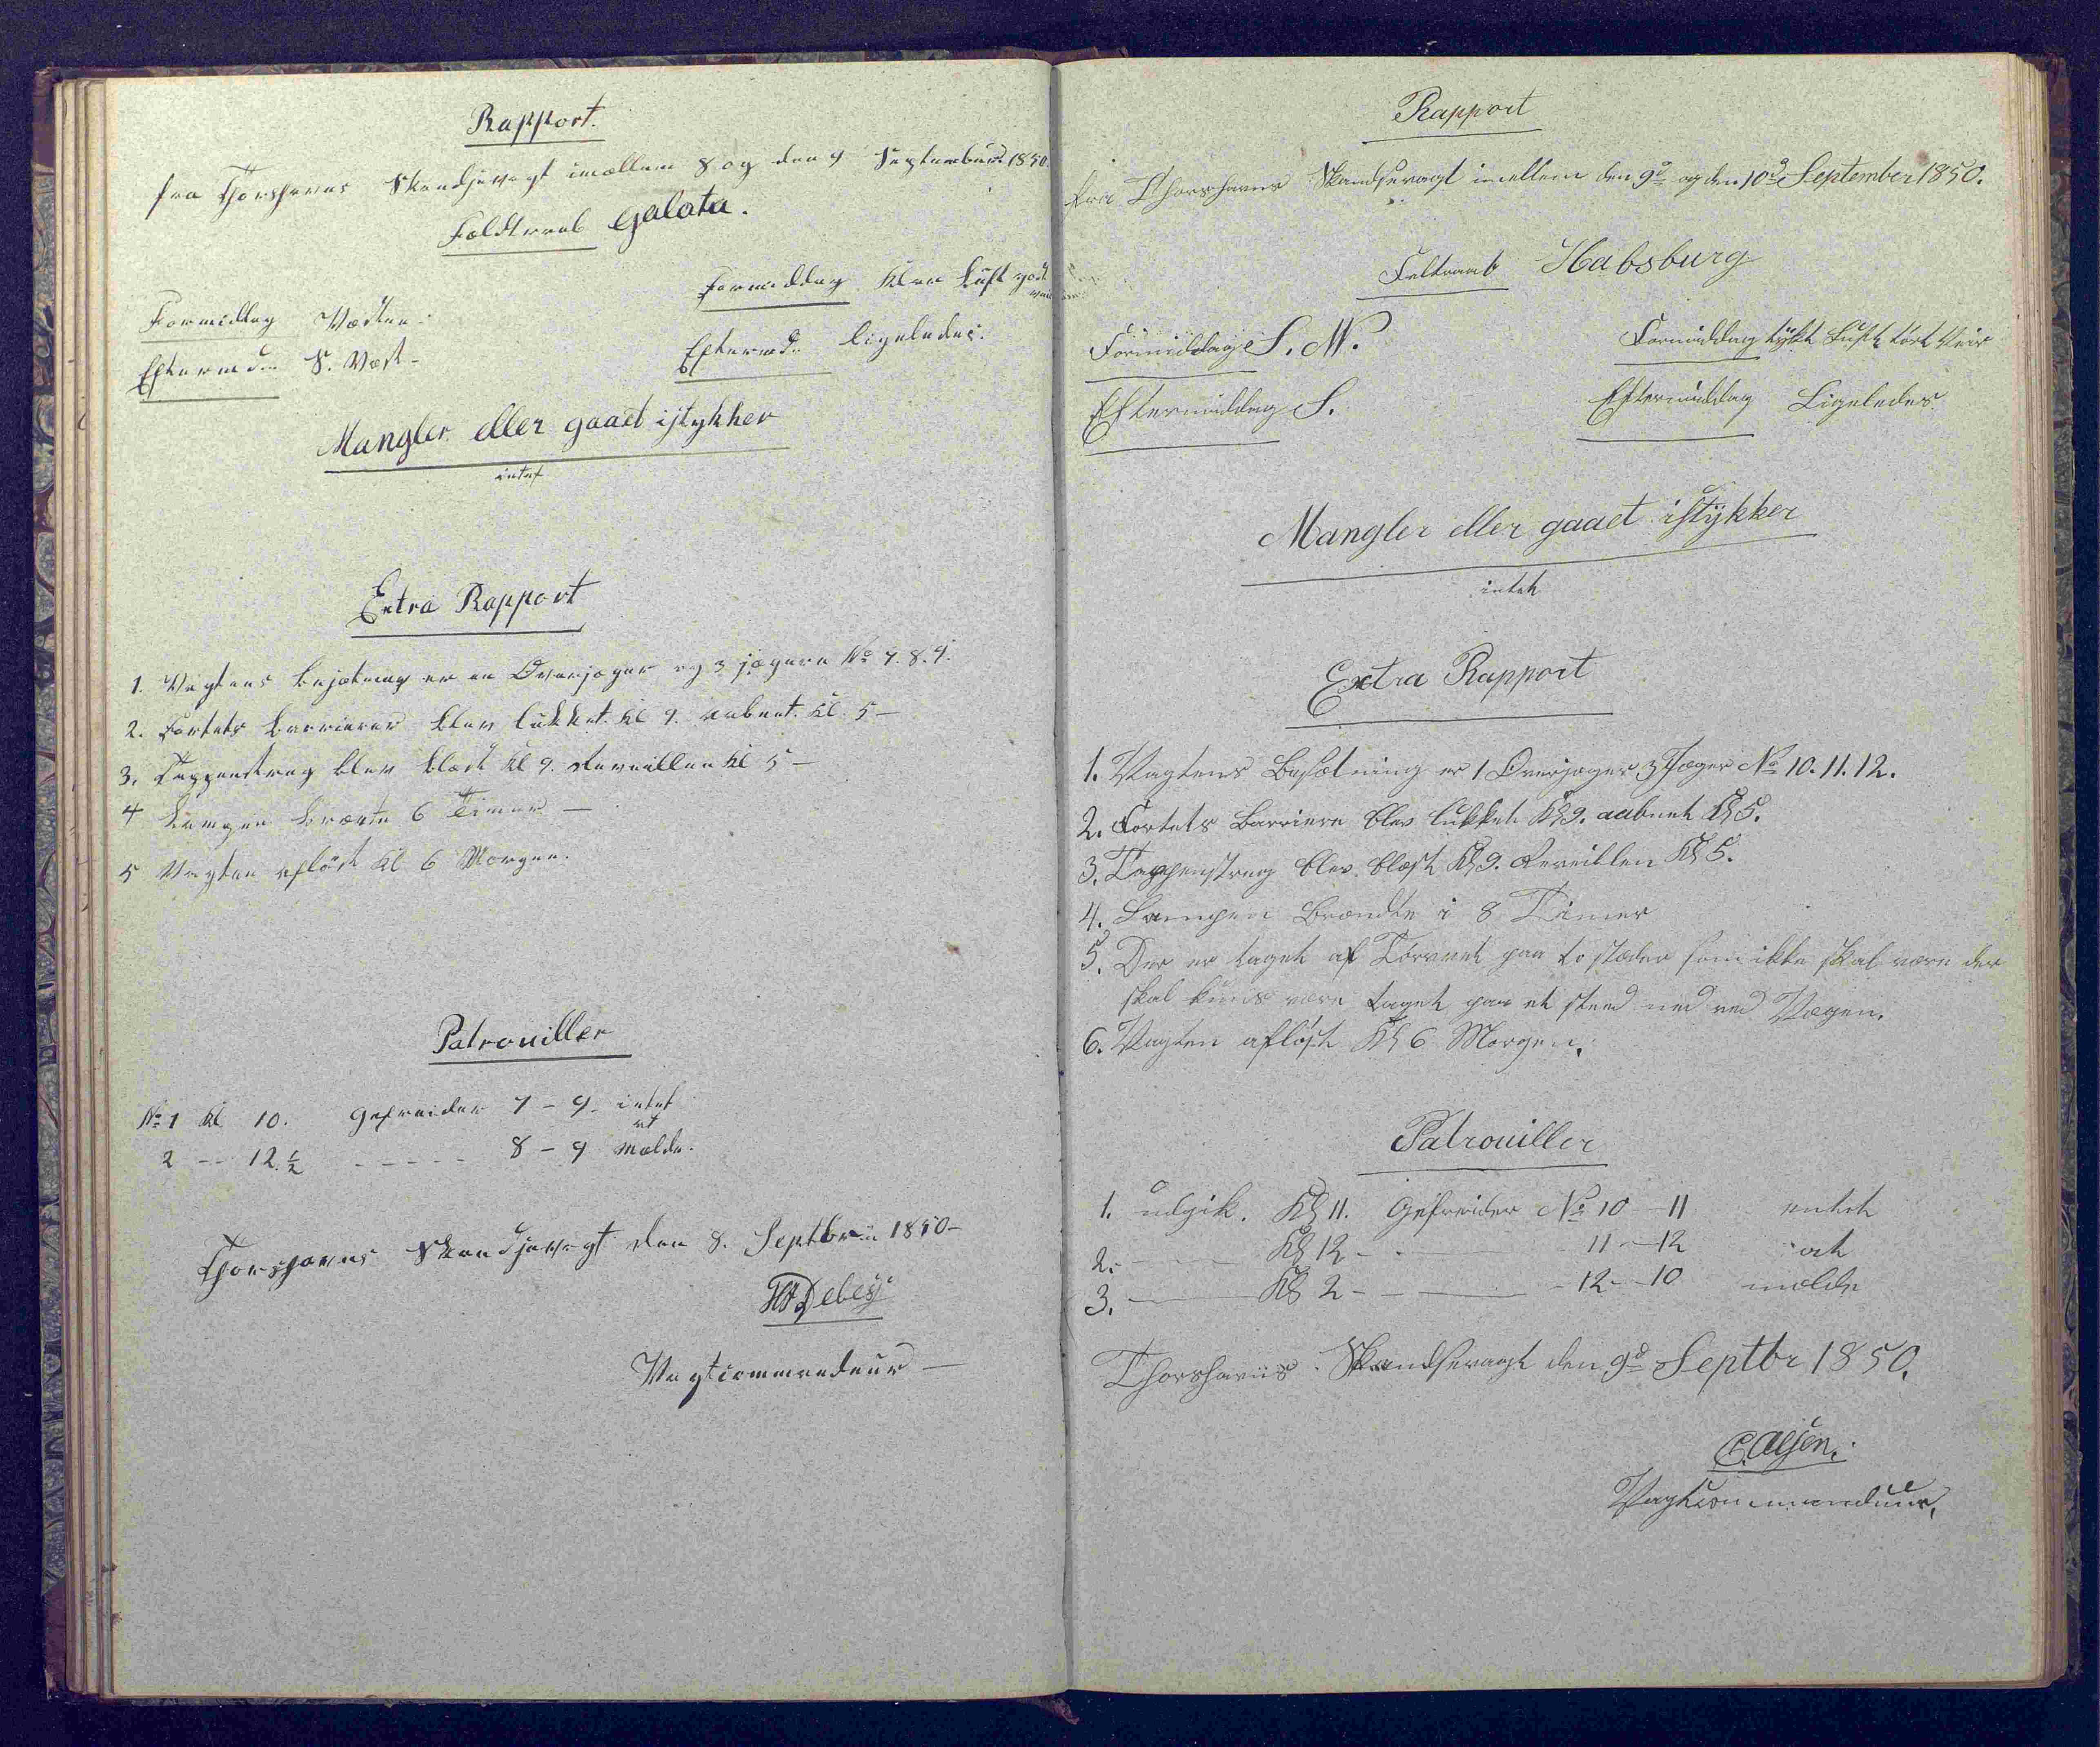 Rapport.
fra Thorshavns Skandsevagt imellem 8 og den 9 September 1850
Feldtraab Galata.
Formiddag Klar Luft godt
Formidag Vesten.
Efterm d. ligeledes.
Efterm d. S. Vest -
Mangler eller gaaet istykker
intet
Extra Rapport
1. Vagtens besætning er en Overjæger og 3 jægere No 7. 8. 9.
2. Fortets Barrierer blev lukket Kl 9. aabnet Kl. 5 -
3. Tappenstreg blev blæst Kl 9. Reveillen Kl 5 -
4 Lampen brænte 6 Timer -
5 Vagten afløst Kl 6 Morgen.
Patrouiller
No 1 Kl 10. Gefreider 7 - 9 intet
at
2 -- 12 ½ ----- 8 - 9 melde.
Thorshavns Skandsevagt den 8. Septbr 1850 -
Debes
Vagtcommandeur -
Rapport
fra Thorshavns Skandsevagt imellem den 9d og den 10d September 1850.
Feltraab Habsburg
Formiddag S. W. Formiddag tykt Luft tört Veir
Eftermiddag S. Eftermiddag Ligeledes
Mangler eller gaaet istykker
intet
Extra Rapport
1. Vagtens Besætning er 1 Overjæger 3 Jæger No 10. 11. 12.
2. Fortets Barriere blev lukket Kl 9. aabnet Kl 5.
3. Tappenstreg blev blæst Kl 9. Reveillen Kl 5.
4. Lampen Brændte i 8 Timer
5. Der er taget af Törvene paa to stæder som ikke skal være der
skal kuns være taget paa et sted ned ved Vægen.
6. Vagten aflöst Kl 6 Morgen.
Patrouiller
1. udgik. Kl 11. Gefreider No 10 - 11 intet
2. --- Kl 12 - --- 11 - 12 at
3. --- Kl 2 - --- 12 - 10 melde
Thorshavns Skandsevagt den 9d Septbr 1850.
Vagtcommandeur.